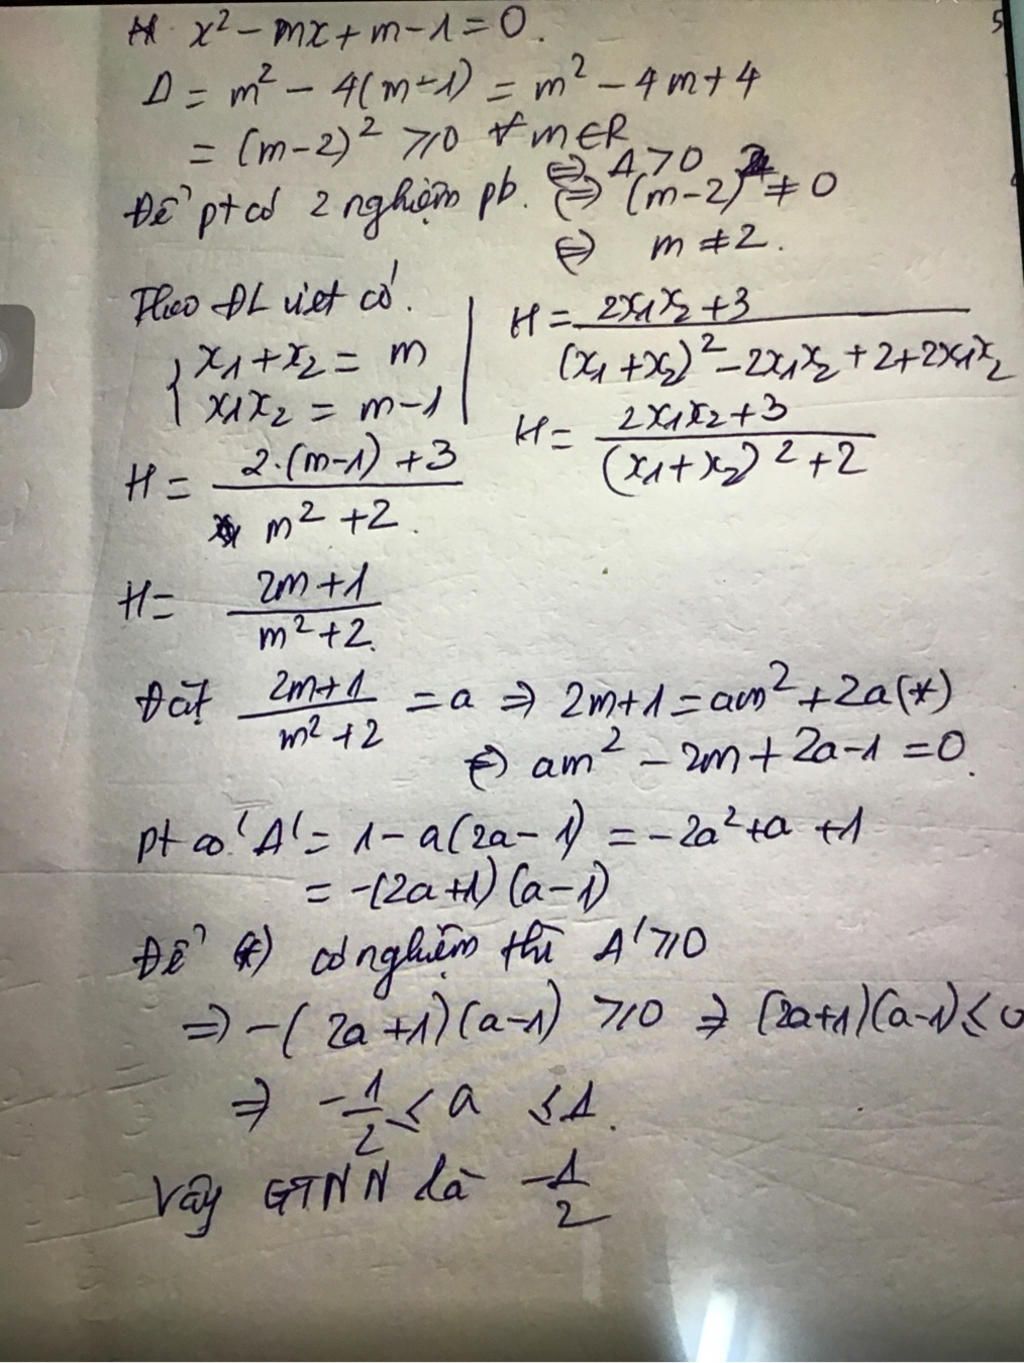 x² - mx + m - 1 = 0.
5
Δ = m² - 4(m-1) = m² - 4m + 4
= (m-2)² ≥ 0 ∀m∈R
Để pt có 2 nghiệm pb. ⇔ Δ > 0
⇔ (m-2)² ≠ 0
⇔ m ≠ 2.
Theo ĐL viet có.
{ x1 + x2 = m
x1x2 = m-1
H = 2x1x2 + 3 / (x1+x2)² - 2x1x2 + 2 + 2x1x2
H = 2x1x2 + 3 / (x1+x2)² + 2
H = 2.(m-1) + 3 / m² + 2.
H = 2m+1 / m²+2.
Đặt 2m+1 / m²+2 = a ⇒ 2m+1 = am² + 2a (*)
⇔ am² - 2m + 2a - 1 = 0.
pt có Δ' = 1 - a(2a-1) = -2a² + a + 1
= -(2a+1)(a-1)
Để (*) có nghiệm thì Δ' ≥ 0
⇒ -(2a+1)(a-1) ≥ 0 ⇒ (2a+1)(a-1) ≤ 0
⇒ -1/2 ≤ a ≤ 1.
Vậy GTNN là -1/2